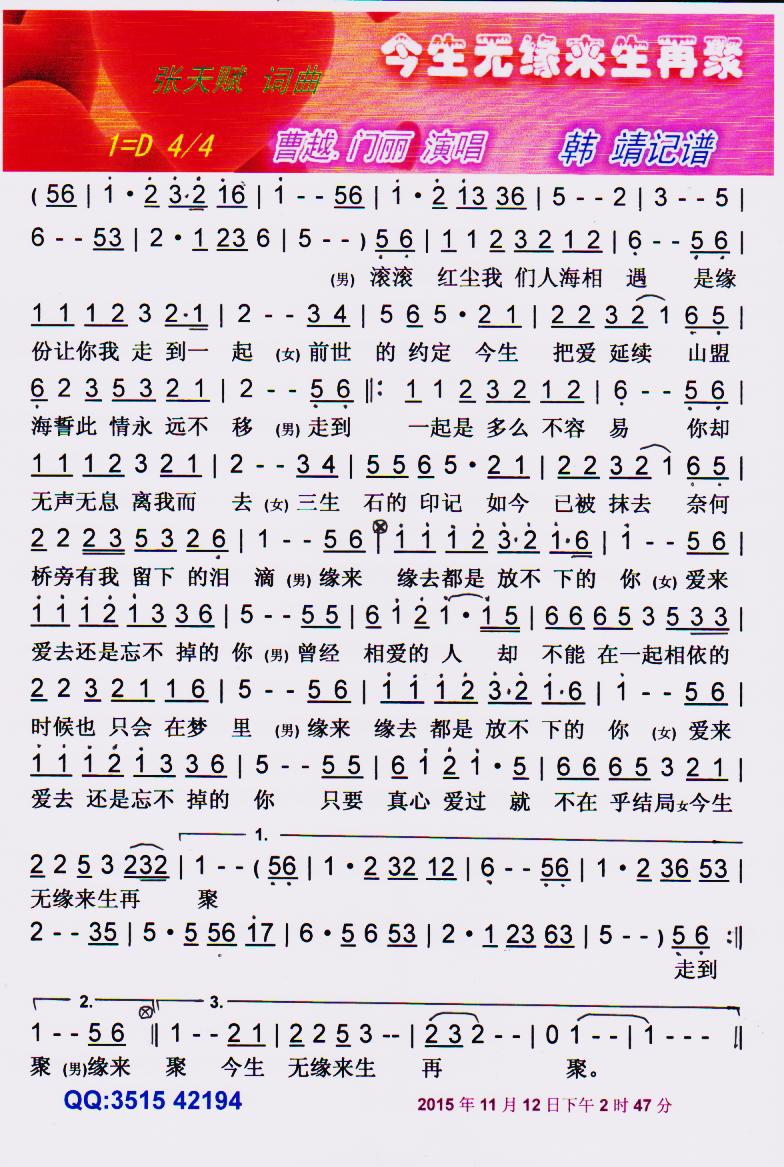 今生无缘来生再聚
张天赋 词曲
1=D 4/4 曹越.门丽 演唱 韩 靖记谱
( 56 | 1 · 2 3·2 16 | 1 - - 56 | 1 · 2 13 36 | 5 - - 2 | 3 - - 5 |
6 - - 53 | 2 · 1 23 6 | 5 - - ) 5 6 | 1 1 2 3 2 1 2 | 6 - - 5 6 |
(男) 滚滚 红尘我 们人海相 遇 是缘
1 1 1 2 3 2·1 | 2 - - 3 4 | 5 6 5 · 2 1 | 2 2 3 2 1 6 5 |
份让你我 走 到一 起 (女) 前世 的 约定 今生 把爱 延续 山盟
6 2 3 5 3 2 1 | 2 - - 5 6 ‖: 1 1 2 3 2 1 2 | 6 - - 5 6 |
海誓此 情永 远不 移 (男) 走到 一起是 多么 不容 易 你却
1 1 1 2 3 2 1 | 2 - - 3 4 | 5 5 6 5 · 2 1 | 2 2 3 2 1 6 5 |
无声无息 离我而 去 (女) 三生 石的 印记 如今 已被 抹去 奈何
2 2 2 3 5 3 2 6 | 1 - - 5 6 | 1 1 1 2 3·2 1·6 | 1 - - 5 6 |
桥旁有我 留下 的泪 滴 (男) 缘来 缘去都是 放不 下的 你 (女) 爱来
1 1 1 2 1 3 3 6 | 5 - - 5 5 | 6 1 2 1 · 1 5 | 6 6 6 5 3 5 3 3 |
爱去还是忘不 掉的 你 (男) 曾经 相爱的 人 却 不能 在一起相依的
2 2 3 2 1 1 6 | 5 - - 5 6 | 1 1 1 2 3·2 1·6 | 1 - - 5 6 |
时候也 只会 在梦 里 (男) 缘来 缘去 都是 放不 下的 你 (女) 爱来
1 1 1 2 1 3 3 6 | 5 - - 5 5 | 6 1 2 1 · 5 | 6 6 6 5 3 2 1 |
爱去 还是忘不 掉的 你 只要 真心 爱过 就 不在 乎结局女今生
1.
2 2 5 3 232 | 1 - - ( 56 | 1 · 2 32 12 | 6 - - 56 | 1 · 2 36 53 |
无缘来生再 聚
2 - - 35 | 5 · 5 56 17 | 6 · 5 6 53 | 2 · 1 23 63 | 5 - - ) 5 6 :‖
走到
2. 3.
1 - - 5 6 ‖ 1 - - 2 1 | 2 2 5 3 -- | 2 3 2 - - | 0 1 - - | 1 - - - ‖
聚 (男)缘来 聚 今生 无缘来生 再 聚。
QQ:3515 42194 2015 年 11 月 12 日下午 2 时 47 分